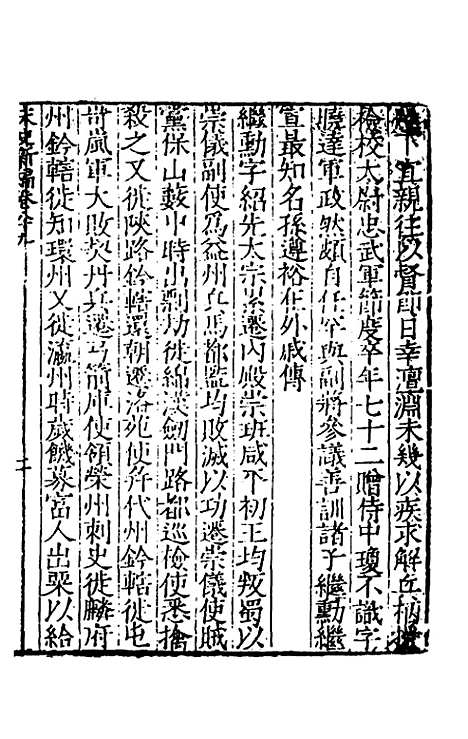 下宜親往以督即日幸澶淵未幾以疾求解兵柄授
檢校太尉忠武軍節度卒年七十二贈侍中瓊不識字
曉達軍政然頗自任罕與副將參議善訓諸子繼勳繼
宣最知名孫遵裕在外戚傳
繼勳字紹先太宗累遷内殿崇班咸平初王均叛蜀以
崇儀副使為益州兵馬都監均敗滅以功遷崇儀使賊
黨保山藪中時出剽劫徙綿漢劍門路都巡檢使悉擒
殺之又徙陝路鈐轄還朝遷洛苑使并代州鈐轄徙屯
岢嵐軍大敗契丹兵遷弓箭庫使領榮州刺史徙麟府
州鈐轄徙知環州又徙瀛州時歲饑募富人出粟以給
宋史新編卷八十九
二